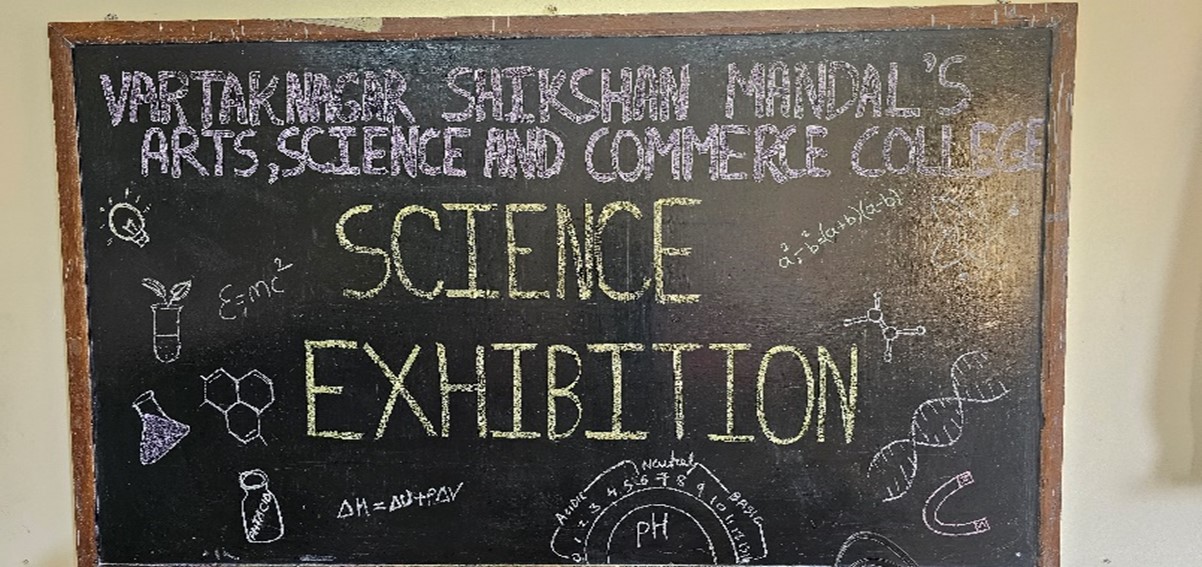 VARTAKNAGAR SHIKSHAN MANDAL'S
ARTS, SCIENCE AND COMMERCE COLLEGE
SCIENCE
EXHIBITION
a²-b²=(a+b)(a-b)
E=mc²
ΔH=ΔU+PΔV
Neutral
ACIDIC
BASIC
0 1 2 3 4 5 6 7 8 9 10 11 12
pH